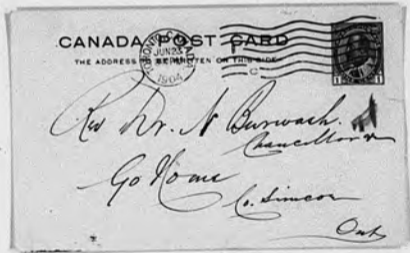 CANADA POST CARD
THE ADDRESS TO BE WRITTEN ON THIS SIDE
TORONTO, CANADA
JUN 23
1904
C
1 1
Rev Dr. N Burwash.
Chancellor
Go Home
Co. Simcoe
Ont